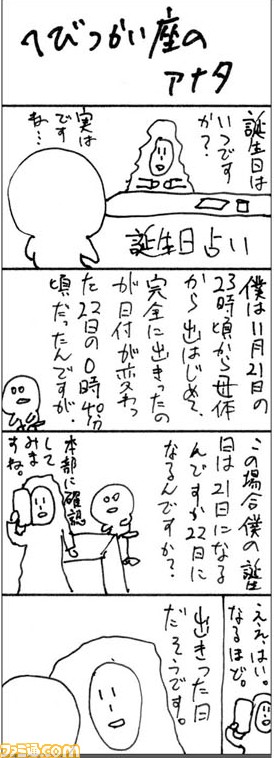 へびつかい座の
アナタ
誕生日は
いつです
か?
実は
です
ね…
誕生日占い
僕は11月21日の
23時頃から母体
から出はじめて、
完全に出きったの
が日付が変わっ
た22日の0時40分
頃だったんですが、
この場合僕の誕生
日は21日になる
んですか22日に
なるんですか?
本部に確認
して
みま
すね。
ええ、はい。
なるほど。
出きった日
だそうです。
ファミ通.com